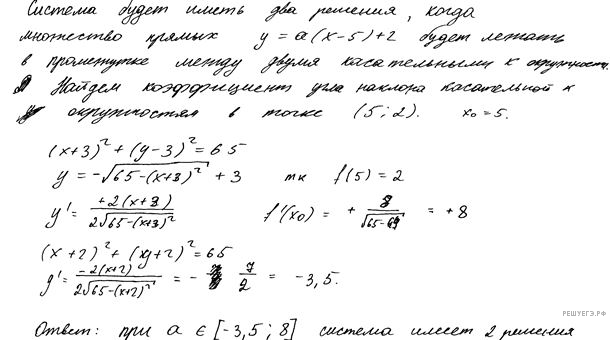 Система будет иметь два решения, когда
множество прямых y = a(x-5)+2 будет лежать
в промежутке между двумя касательными к окружности.
Найдем коэффициент угла наклона касательной к
окружностям в точке (5; 2). x₀ = 5.
(x+3)² + (y-3)² = 65
y = -√(65-(x+3)²) + 3 тк f(5) = 2
y' = +2(x+3) / 2√(65-(x+3)²) f'(x₀) = + 8/√(65-64) = +8
(x+2)² + (y+2)² = 65
y' = -2(x+2) / 2√(65-(x+2)²) = - 7/2 = -3,5.
Ответ: при a ∈ [-3,5; 8] система имеет 2 решения
РЕШУЕГЭ.РФ